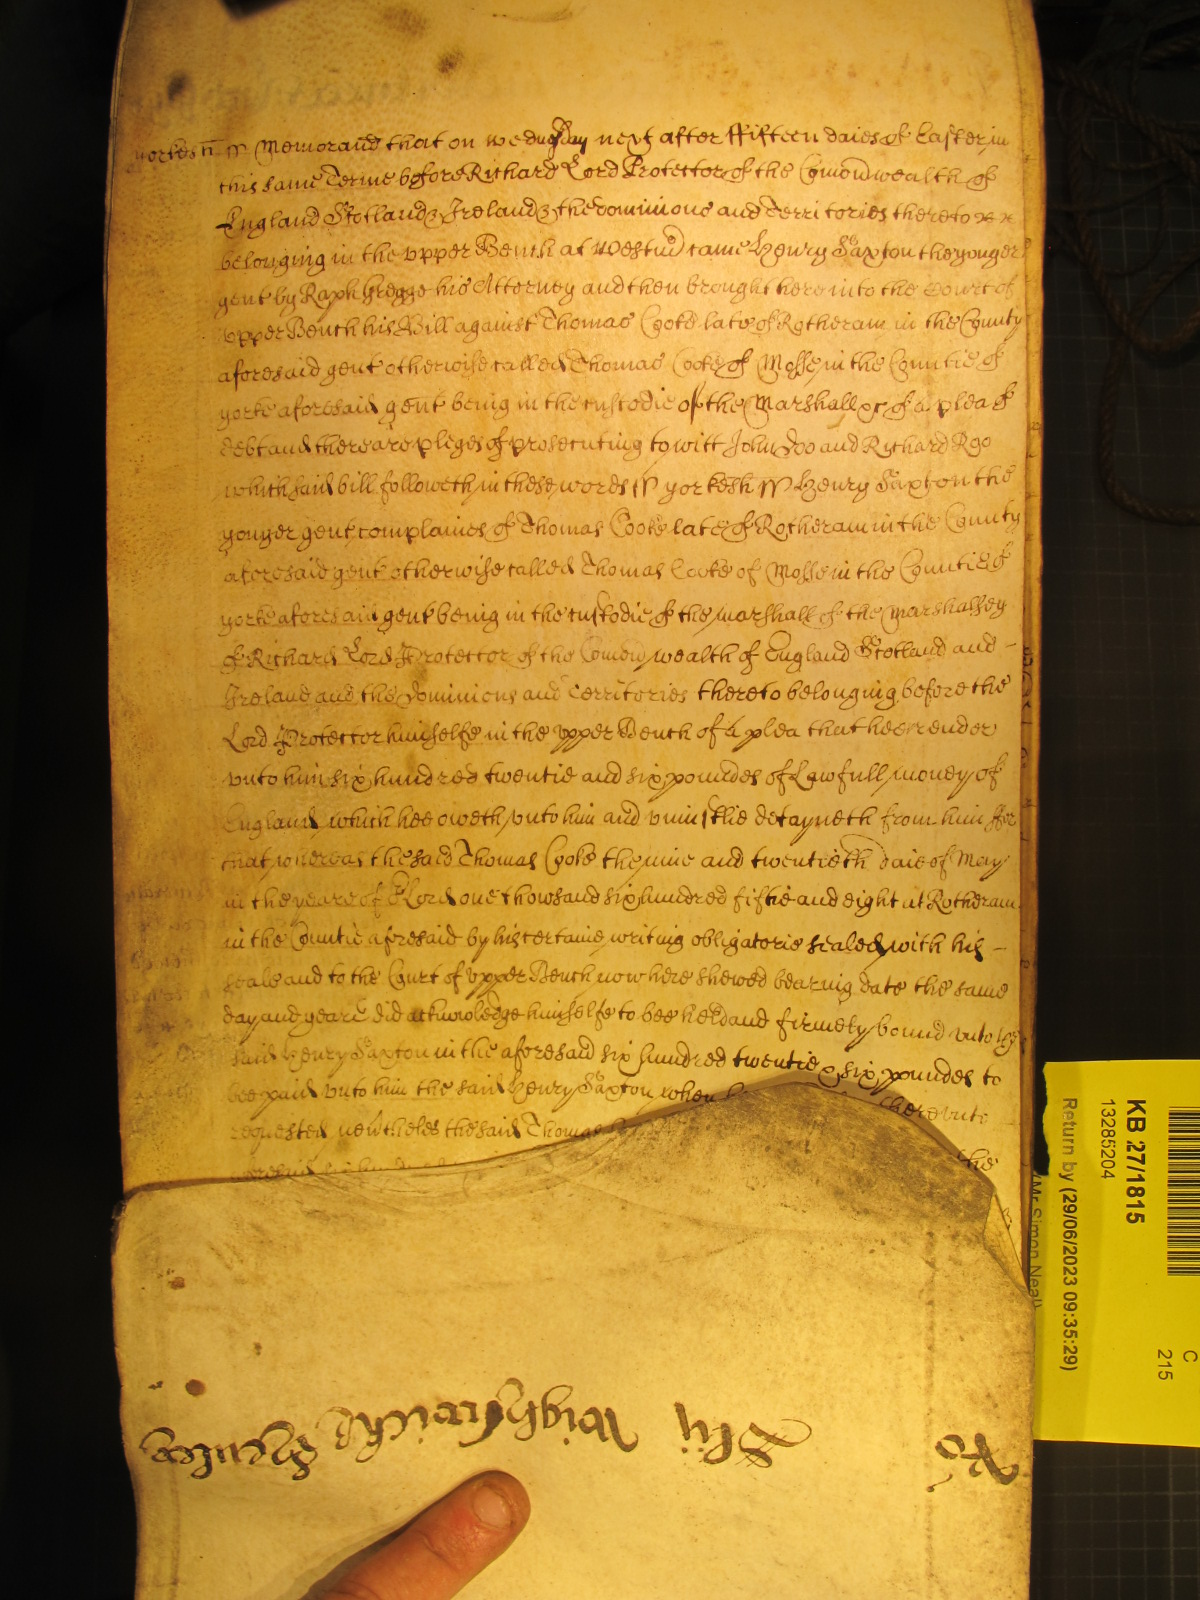 yorkes ss Memorand that on wednesday next after ffifteen daies of Easter in
this same Terme before Richard Lord Protector of the Comonwealth of
England Scotland & Ireland & the dominions and Territories thereto
belonging in the vpper Bench at westm came Henry Saxton the yonger
gent by Raph Gregge his Attorney and then brought here into the Court of
vpper Bench his Bill against Thomas Cooke late of Rotheram in the County
aforesaid gent otherwise called Thomas Cooke of Mosse in the Countie of
yorke aforesaid gent being in the custodie of the Marshall &c of a plea of
debt and there are pleges of prosecuting to witt John Doo and Richard Roo
which said bill followeth in these words ss yorkesh ss Henry Saxton the
yonger gent complaines of Thomas Cooke late of Rotheram in the County
aforesaid gent otherwise called Thomas Cooke of Mosse in the Countie of
yorke aforesaid gent being in the custodie of the marshall of the marshalsey
of Richard Lord Protector of the Comon wealth of England Scotland and -
Ireland and the Dominions and Territories thereto belonging before the
Lord Protector himselfe in the vpper Bench of a plea that hee render
vnto him six hundred twentie and six poundes of Lawfull money of
England which hee oweth vnto him and vniustlie detayneth from him ffor
that whereas the said Thomas Cooke the nine and twentieth daie of May
in the yeare of or Lord one thowsand six hundred fiftie and eight at Rotheram
in the Countie aforesaid by his certaine writing obligatorie sealed with his -
seale and to the Court of vpper Bench now here shewed bearing date the same
day and yeare did acknowledge himselfe to bee held and firmely bound vnto the
said Henry Saxton in the aforesaid six hundred twentie & six poundes to
bee paid vnto him the said Henry Saxton when thereunto
requested neutheles the said Thomas
aforesaid the
KB 27/1815
13285204
Return by (29/06/2023 09:35:29)
C
215